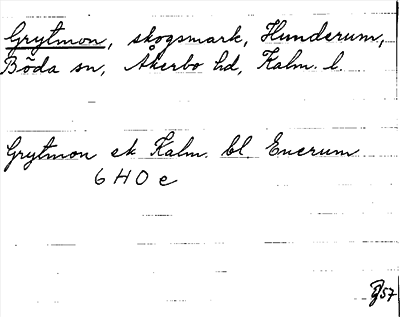 Grytmon, skogsmark, Hunderum,
Böda sn, Åkerbo hd, Kalm. l.
Grytmon ek Kalm. bl. Enerum
6 H O e
57